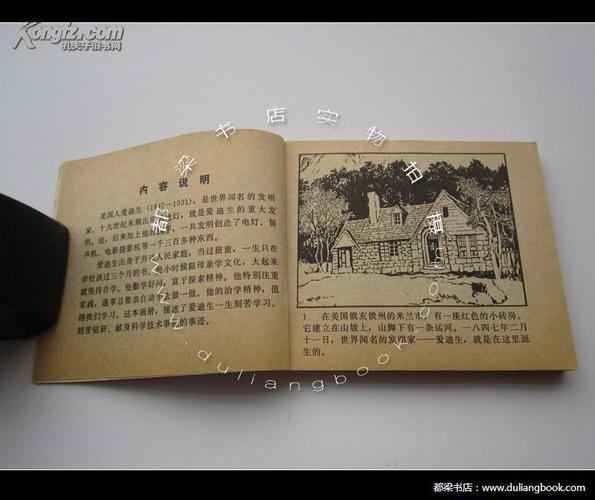 Kongfz.com
孔夫子旧书网
都梁书店实物拍摄
www.duliangbook.com
内容说明
美国人爱迪生(1847—1931),是世界闻名的发明
家。十九世纪末期出现的电灯,就是爱迪生的重大发
明。他,后来加上他的助手,一共发明创造了电灯、留
声机、电影摄影机等一千三百多种东西。
爱迪生出身于劳动人民家庭,当过报童,一生只在
学校读过三个月的书。小时候跟母亲学文化,大起来
就坚持自学。他勤学好问,富于探索精神。他特别注重
实践,遇事总要亲自动手做一做。他的治学精神,值
得我们学习。这本画册,描述了爱迪生一生刻苦学习、
刻苦钻研、献身科学技术事业的事迹。
1 在美国俄亥俄州的米兰市,有一座红色的小砖房。
它建立在山坡上,山脚下有一条运河。一八四七年二月
十一日,世界闻名的发明家——爱迪生,就是在这里诞
生的。
都梁书店:www.duliangbook.com